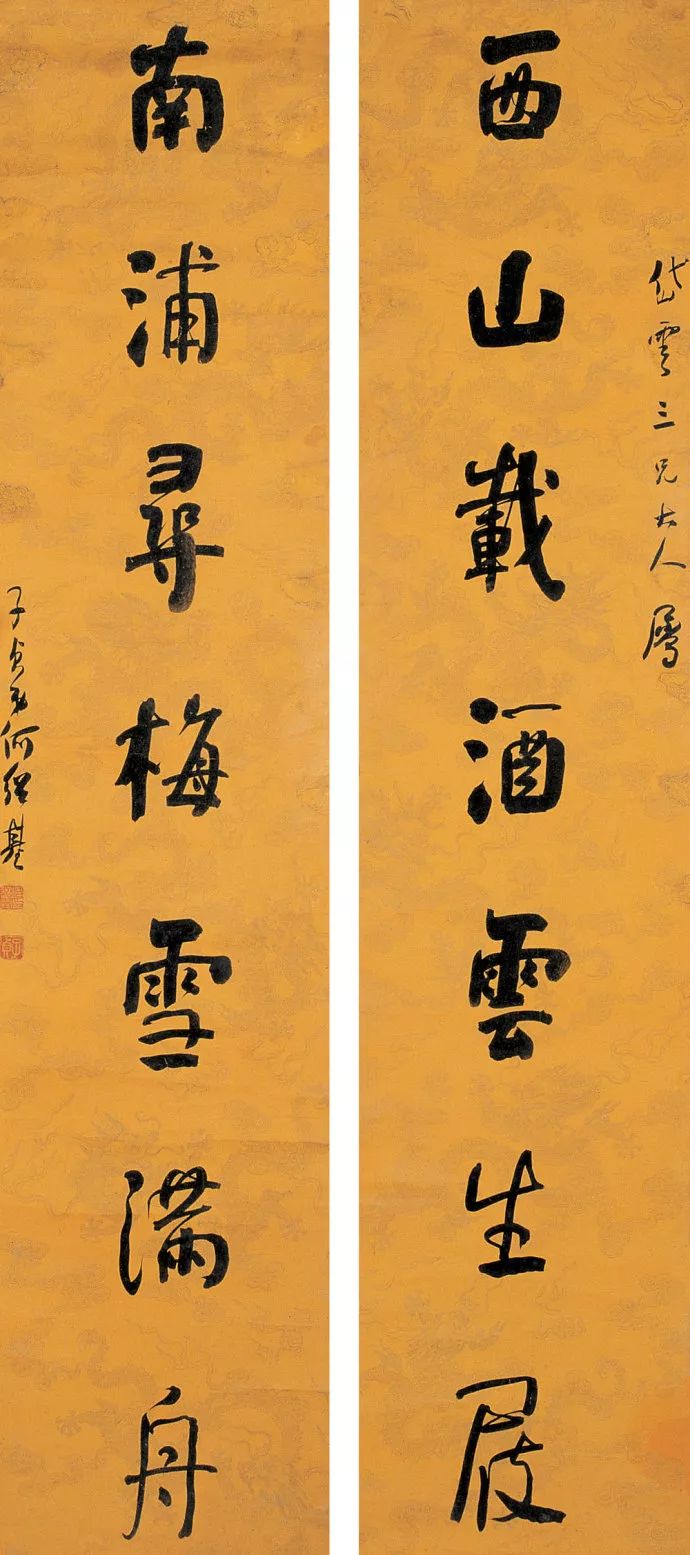 岱雲三兄大人屬
西山載酒雲生屐
南浦尋梅雪滿舟
子貞弟何紹基